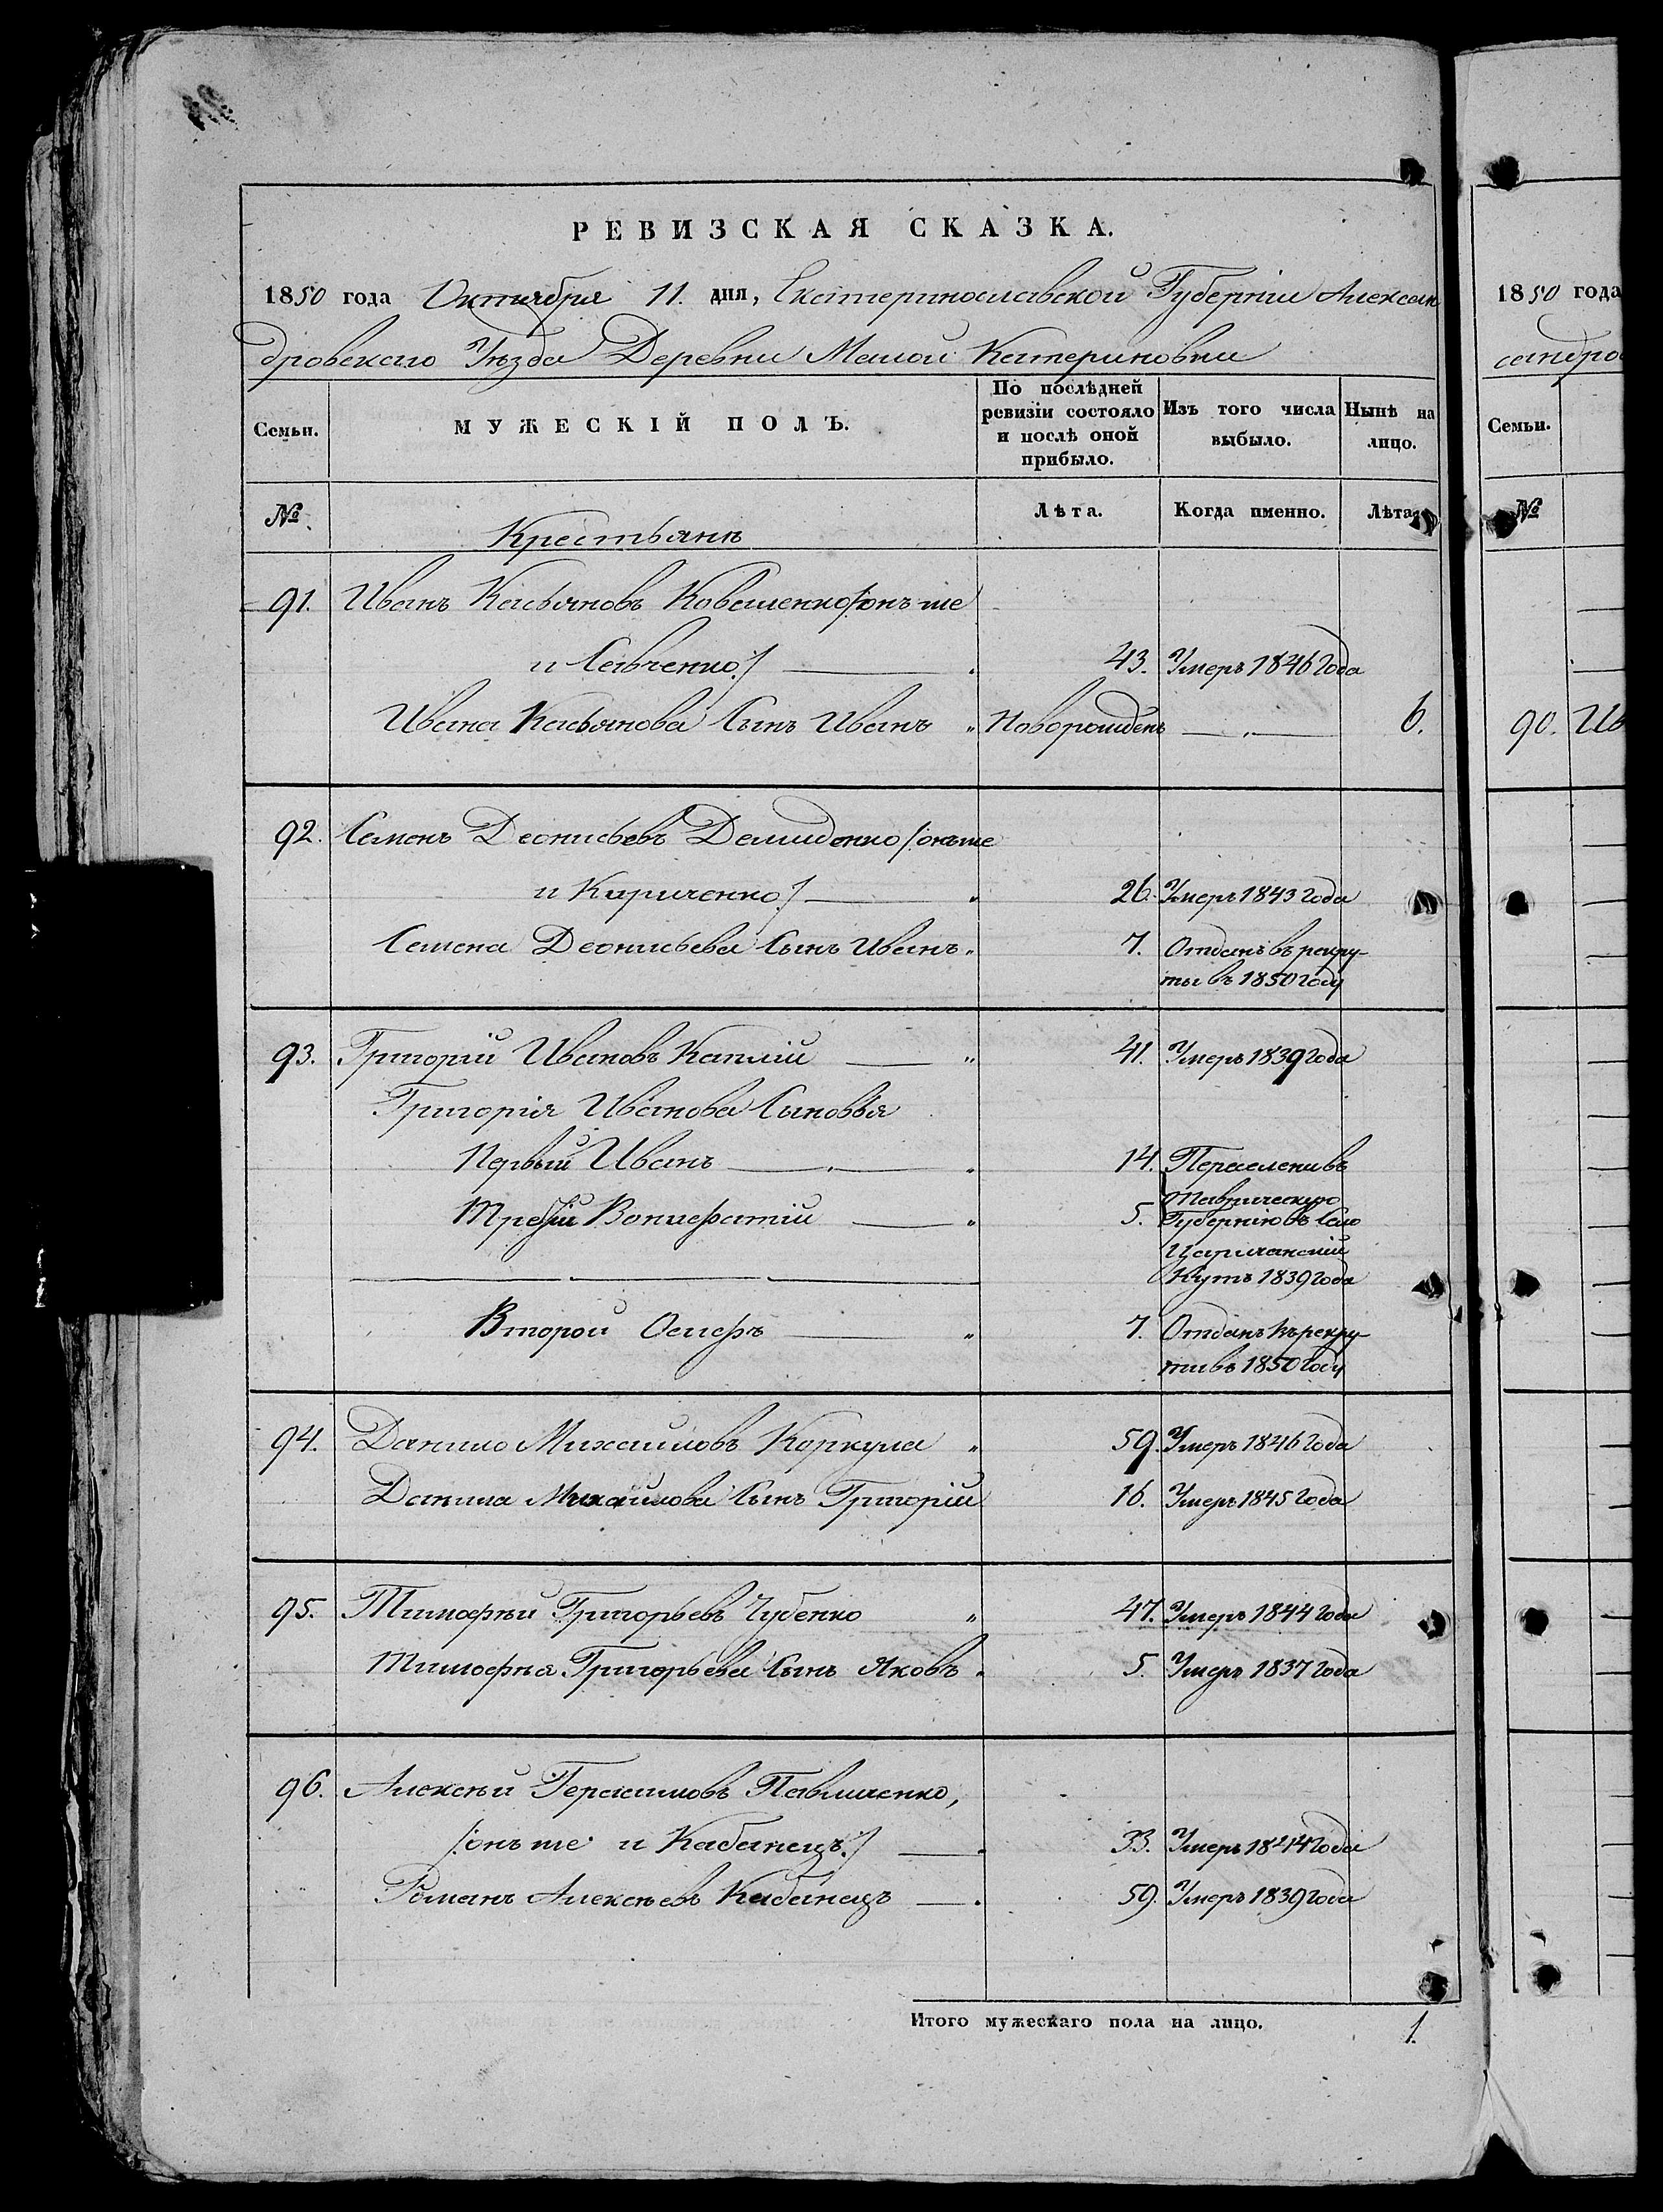 РЕВИЗСКАЯ СКАЗКА.
1850 года Октября 11. дня, Екатеринославской Губерніи Алексан
дровскаго Уѣзда Деревни Малой Катериновки
Семьи.
МУЖЕСКІЙ ПОЛЪ.
По послѣдней ревизіи состояло и послѣ оной прибыло.
Изъ того числа выбыло.
Нынѣ на лицо.
№ Крестьянѣ Лѣта. Когда именно. Лѣта.
91. Иванъ Касьяновъ Коваленко /онъ же
и Савченко/ 43. Умеръ 1846 года
Ивана Касьянова Сынъ Иванъ „ Новорожденъ 6.
92. Семенъ Деонисьевъ Демиденко /онъ же
и Кириченко/ „ 26. Умеръ 1843 года
Семена Деонисьева Сынъ Иванъ „ 7. Отданъ въ рекру-
ты въ 1850 году
93. Григорій Ивановъ Каплій „ 41. Умеръ 1839 года
Григорія Иванова Сыновья
Первый Иванъ „ 14. Переселени въ
Таврическую
Третій Вонифатій „ 5. Губернію въ Село
Царичанскій
Кутъ 1839 года
Второй Осифъ „ 7. Отданъ въ рекру-
ти въ 1850 году
94. Данило Михайловъ Коркула „ 59. Умеръ 1846 года
Данила Михайлова Сынъ Григорій 16. Умеръ 1845 года
95. Тимофѣй Григорьевъ Чубенко „ 47. Умеръ 1844 года
Тимофѣя Григорьева Сынъ Яковъ „ 5. Умеръ 1837 года
96. Алексѣй Герасимовъ Павличенко,
/:онъ же и Кабанецъ:/ 33. Умеръ 1844 года
Романъ Алексѣевъ Кабанецъ 59. Умеръ 1839 года
Итого мужескаго пола на лицо. 1.
1850 года
сандро
Семьи.
№
90. Ив